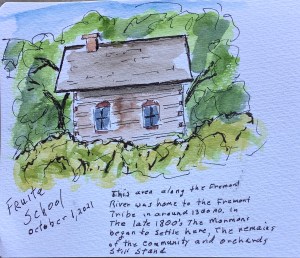 Fruita
School
October 1, 2021
This area along the Fremont
River was home to the Fremont
Tribe in around 1300 AD. In
The late 1800's the Mormons
began to settle here, The remains
of the community and orchards
Still Stand